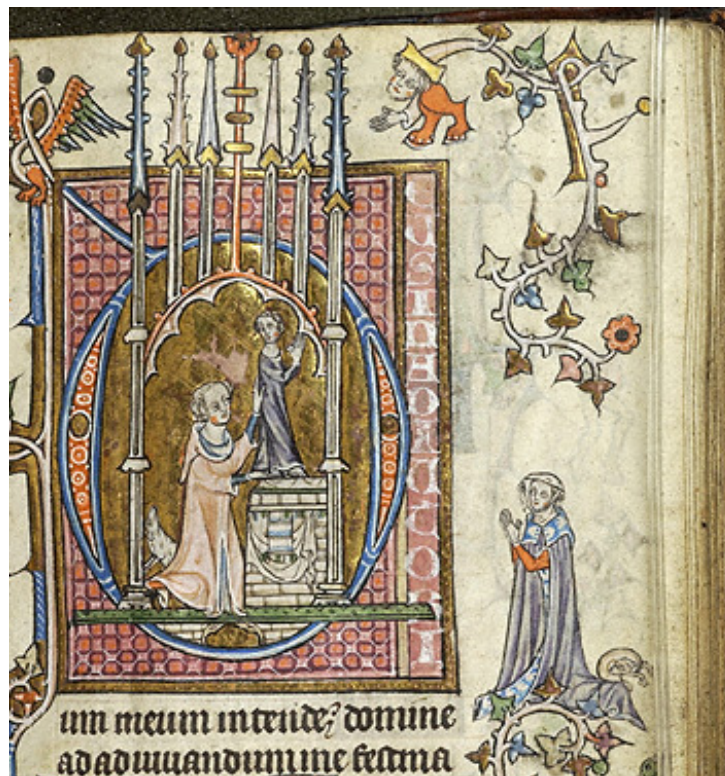 DEUSINADIUTORI
um meum intende; domine
ad adiuuandum me festina